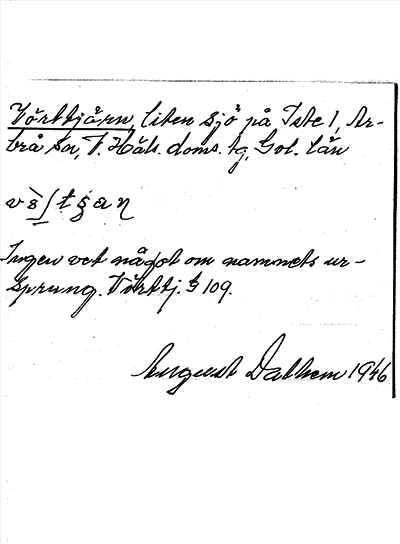 Vörttjärn, liten sjö på Iste 1, Ar-
brå sn, V. Häls. doms. tg, Gvl. län
Ingen vet något om namnets ur-
sprung. Vörttj. § 109.
August Dalhem 1946